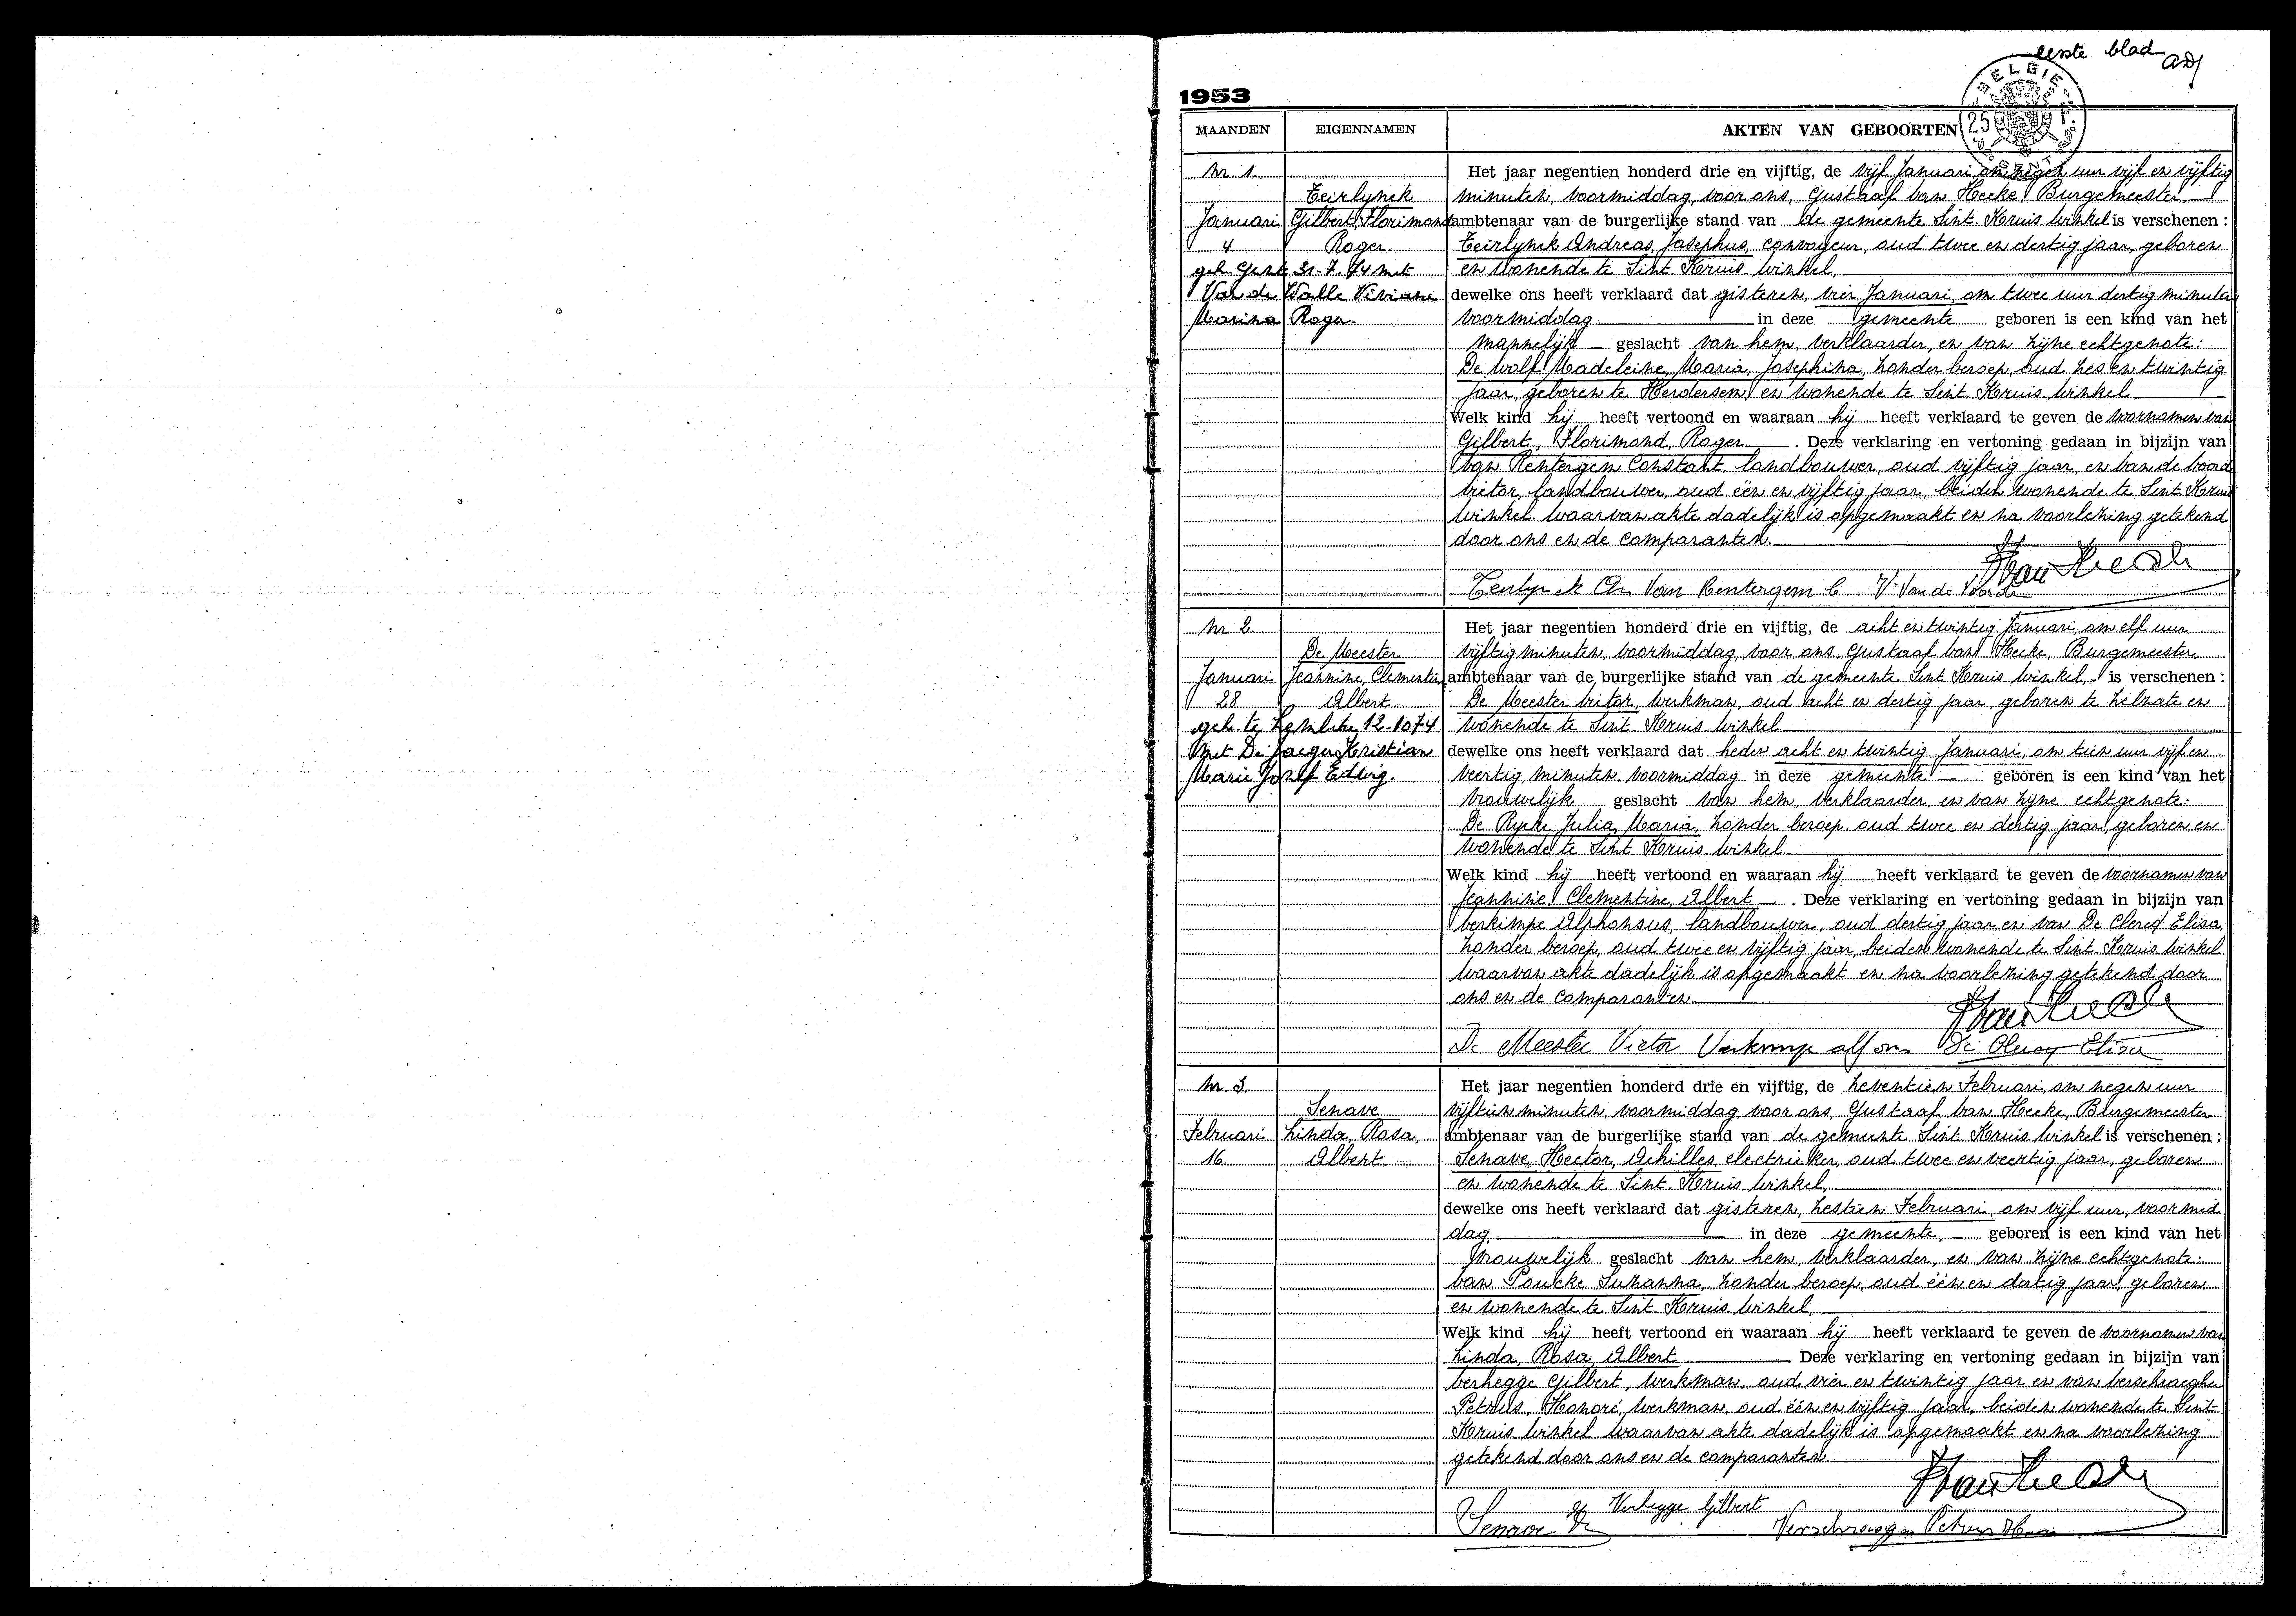 eerste blad
BELGIE
25
1953
MAANDEN EIGENNAMEN AKTEN VAN GEBOORTEN
Nr 1.
Teirlynck
Januari Gilbert, Florimond
4 Roger
geh. Gent 31-7-74 met
Van de Walle Viviane
Marina Roga
Het jaar negentien honderd drie en vijftig, de vijf Januari, om negen uur vijf en vijftig
minuten, voormiddag, voor ons, Gustaaf Van Hecke, Burgemeester,
ambtenaar van de burgerlijke stand van de gemeente Sint Kruis Winkel is verschenen :
Teirlynck Andreas, Josephus, convoyeur, oud twee en dertig jaar, geboren
en wonende te Sint Kruis Winkel,
dewelke ons heeft verklaard dat gisteren, vier Januari, om twee uur dertig minuten
voormiddag in deze gemeente geboren is een kind van het
mannelijk geslacht van hem, verklaarder, en van zijne echtgenote:
De Wolf Madeleine, Maria, Josephina, zonder beroep, oud zes en twintig
jaar, geboren te Herdersem, en wonende te Sint Kruis Winkel
Welk kind hij heeft vertoond en waaraan hij heeft verklaard te geven de voornamen van
Gilbert, Florimond, Roger . Deze verklaring en vertoning gedaan in bijzijn van
Van Rentergem Constant, landbouwer, oud vijftig jaar, en Van de Voorde
Victor, landbouwer, oud één en vijftig jaar, beiden wonende te Sint Kruis
Winkel. Waarvan akte dadelijk is opgemaakt en na voorlezing getekend
door ons en de comparanten.
Teirlynck An Van Rentergem C V. Van de Voorde
Nr 2.
De Meester
Januari Jeannine, Clementine
28 Albert
geh. te Zomergem 12-1074
met De Jaeger Kristian
Marie Jozef Edwig.
Het jaar negentien honderd drie en vijftig, de acht en twintig Januari, om elf uur
vijftig minuten, voormiddag, voor ons, Gustaaf Van Hecke, Burgemeester,
ambtenaar van de burgerlijke stand van de gemeente Sint Kruis Winkel, is verschenen :
De Meester Victor, werkman, oud acht en dertig jaar, geboren te Zelzate en
wonende te Sint Kruis Winkel
dewelke ons heeft verklaard dat heden acht en twintig Januari, om tien uur vijf en
veertig minuten, voormiddag in deze gemeente geboren is een kind van het
vrouwelijk geslacht van hem, verklaarder, en van zijne echtgenote:
De Rycke Julia, Maria, zonder beroep, oud twee en dertig jaar, geboren en
wonende te Sint Kruis Winkel
Welk kind hij heeft vertoond en waaraan hij heeft verklaard te geven de voornamen van
Jeannine, Clementine, Albert . Deze verklaring en vertoning gedaan in bijzijn van
Verkimpe Alphonsus, landbouwer, oud dertig jaar en van De Clercq Elisa,
zonder beroep, oud twee en vijftig jaar, beiden wonende te Sint Kruis Winkel
Waarvan akte dadelijk is opgemaakt en na voorlezing getekend door
ons en de comparanten
De Meester Victor Verkimpe alfons De Clercq Elisa
Nr 3.
Senave
Februari Linda, Rosa,
16 Albert
Het jaar negentien honderd drie en vijftig, de zeventien Februari, om negen uur
vijftien minuten, voormiddag, voor ons, Gustaaf Van Hecke, Burgemeester
ambtenaar van de burgerlijke stand van de gemeente Sint Kruis Winkel is verschenen :
Senave Hector, Achilles, electrieker, oud twee en veertig jaar, geboren
en wonende te Sint Kruis Winkel,
dewelke ons heeft verklaard dat gisteren, zestien Februari, om vijf uur, voormid
dag, in deze gemeente, geboren is een kind van het
vrouwelijk geslacht van hem, verklaarder, en van zijne echtgenote:
Van Poucke Suzanna, zonder beroep, oud één en dertig jaar, geboren
en wonende te Sint Kruis Winkel,
Welk kind hij heeft vertoond en waaraan hij heeft verklaard te geven de voornamen van
Linda, Rosa, Albert Deze verklaring en vertoning gedaan in bijzijn van
Verhegge Gilbert, werkman, oud vier en twintig jaar en van Verschraeghen
Petrus, Honoré, werkman, oud één en vijftig jaar, beiden wonende te Sint
Kruis Winkel Waarvan akte dadelijk is opgemaakt en na voorlezing
getekend door ons en de comparanten
Verhegge Gilbert
Senave Verschraegen Petrus